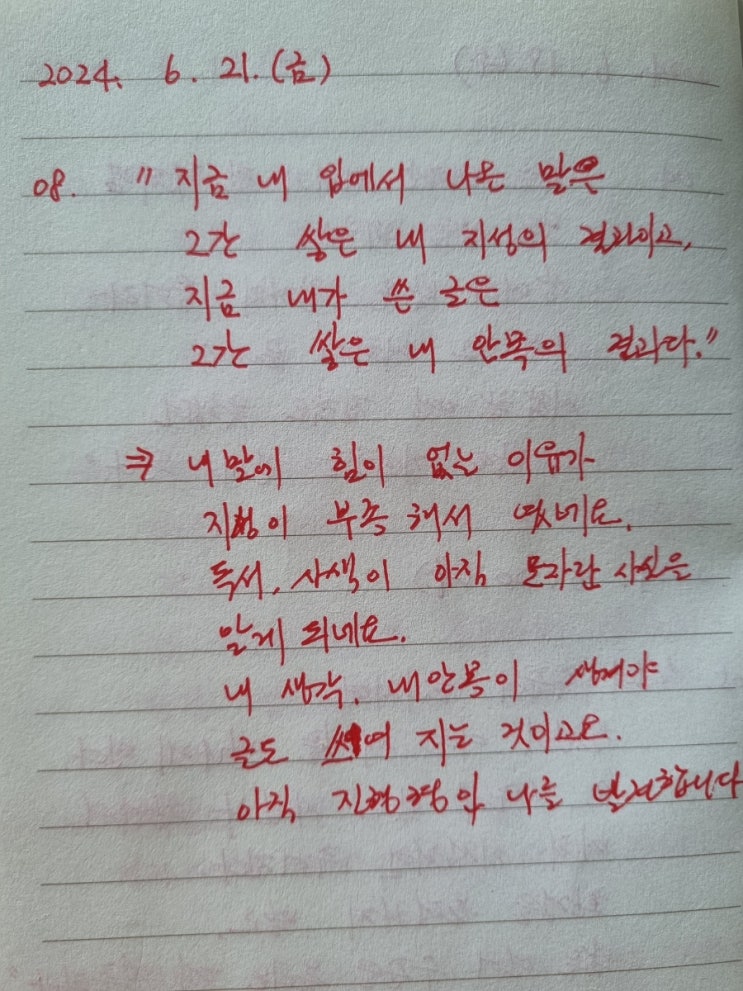 2024. 6. 21. (금)
08. "지금 내 입에서 나온 말은
그간 쌓은 내 지성의 결과이고,
지금 내가 쓴 글은
그간 쌓은 내 안목의 결과다."
⇒ 내 말에 힘이 없는 이유가
지성이 부족해서 였네요.
독서, 사색이 아직 모자란 사실은
알게 되네요.
내 생각, 내 안목이 생겨야
글도 써 지는 것이고요.
아직 진행형인 나를 발견합니다